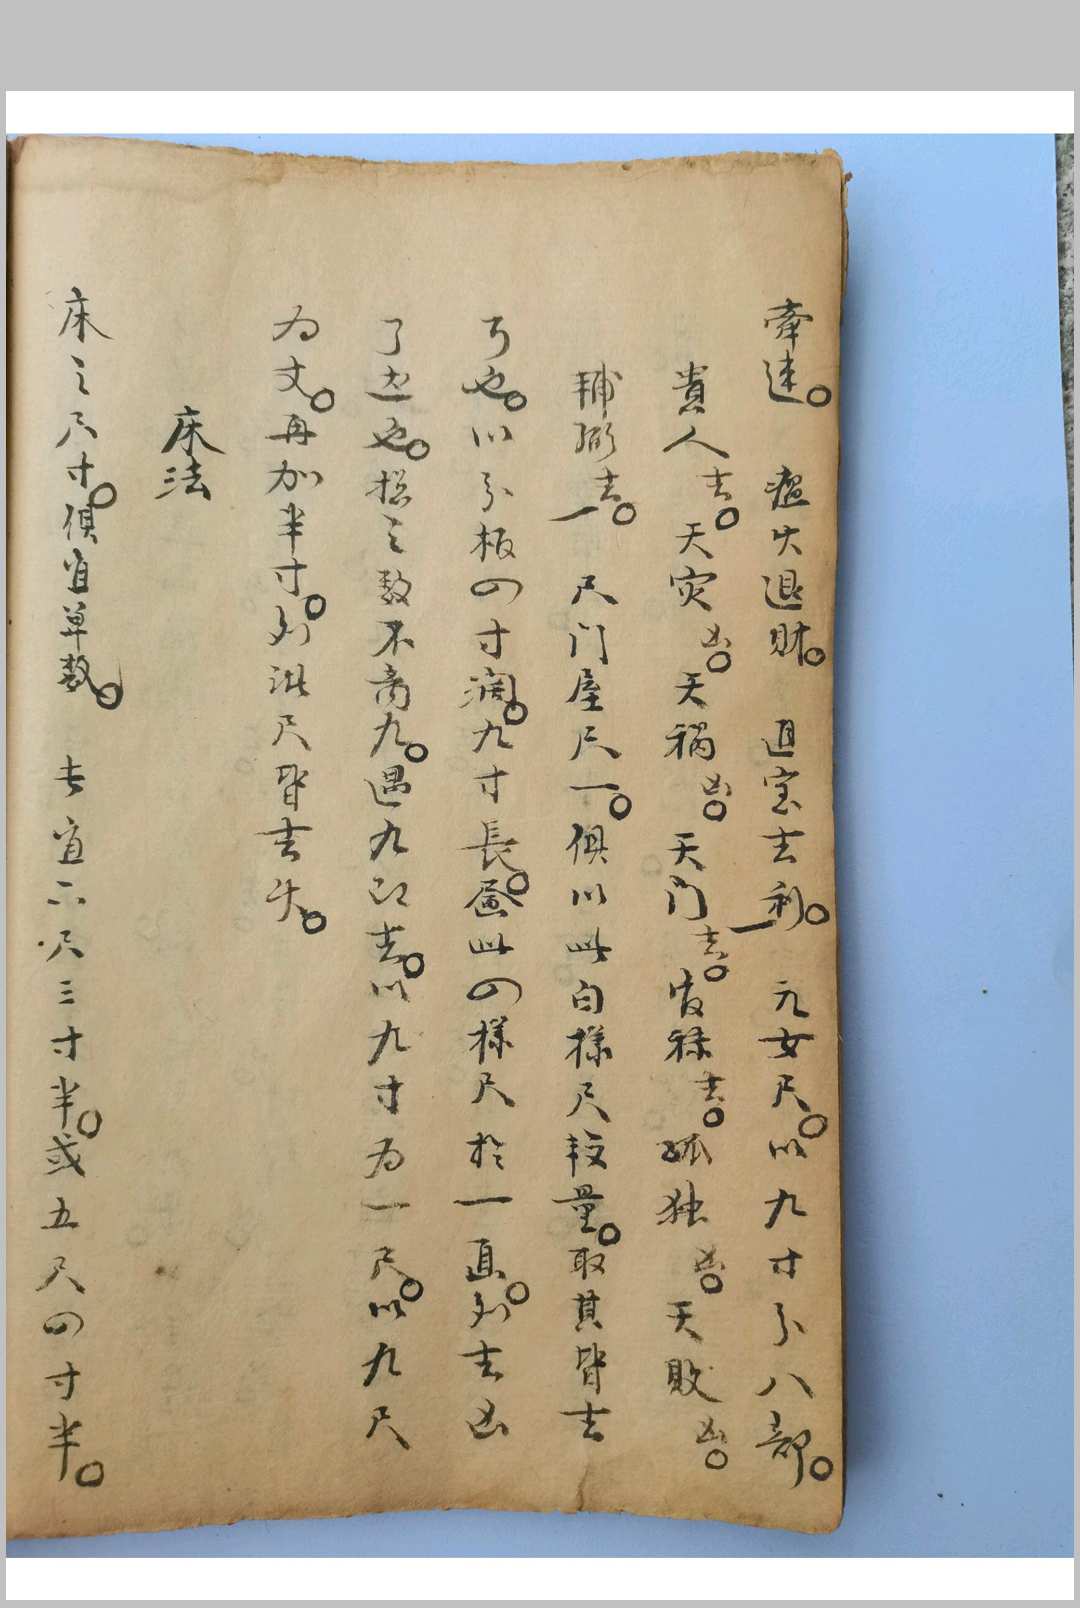 牵连。瘟失退财。進宝吉利。一元女尺。以九寸分八部。
貴人吉。天灾凶。天禍凶。天门吉。官禄吉。孤独凶。天败凶。
輔弼吉。一尺门屋尺一。俱以此白様尺較量。取其皆吉
丂也。以分板四寸濶。九寸長。畫此四様尺於一直。列吉凶
了然也。総之数不离九。遇九即吉。以九寸为一尺。以九尺
为丈。再加半寸。列諸尺皆吉矣。
床法
床之尺寸。俱宜单数。長宜六尺三寸半。或五尺四寸半。